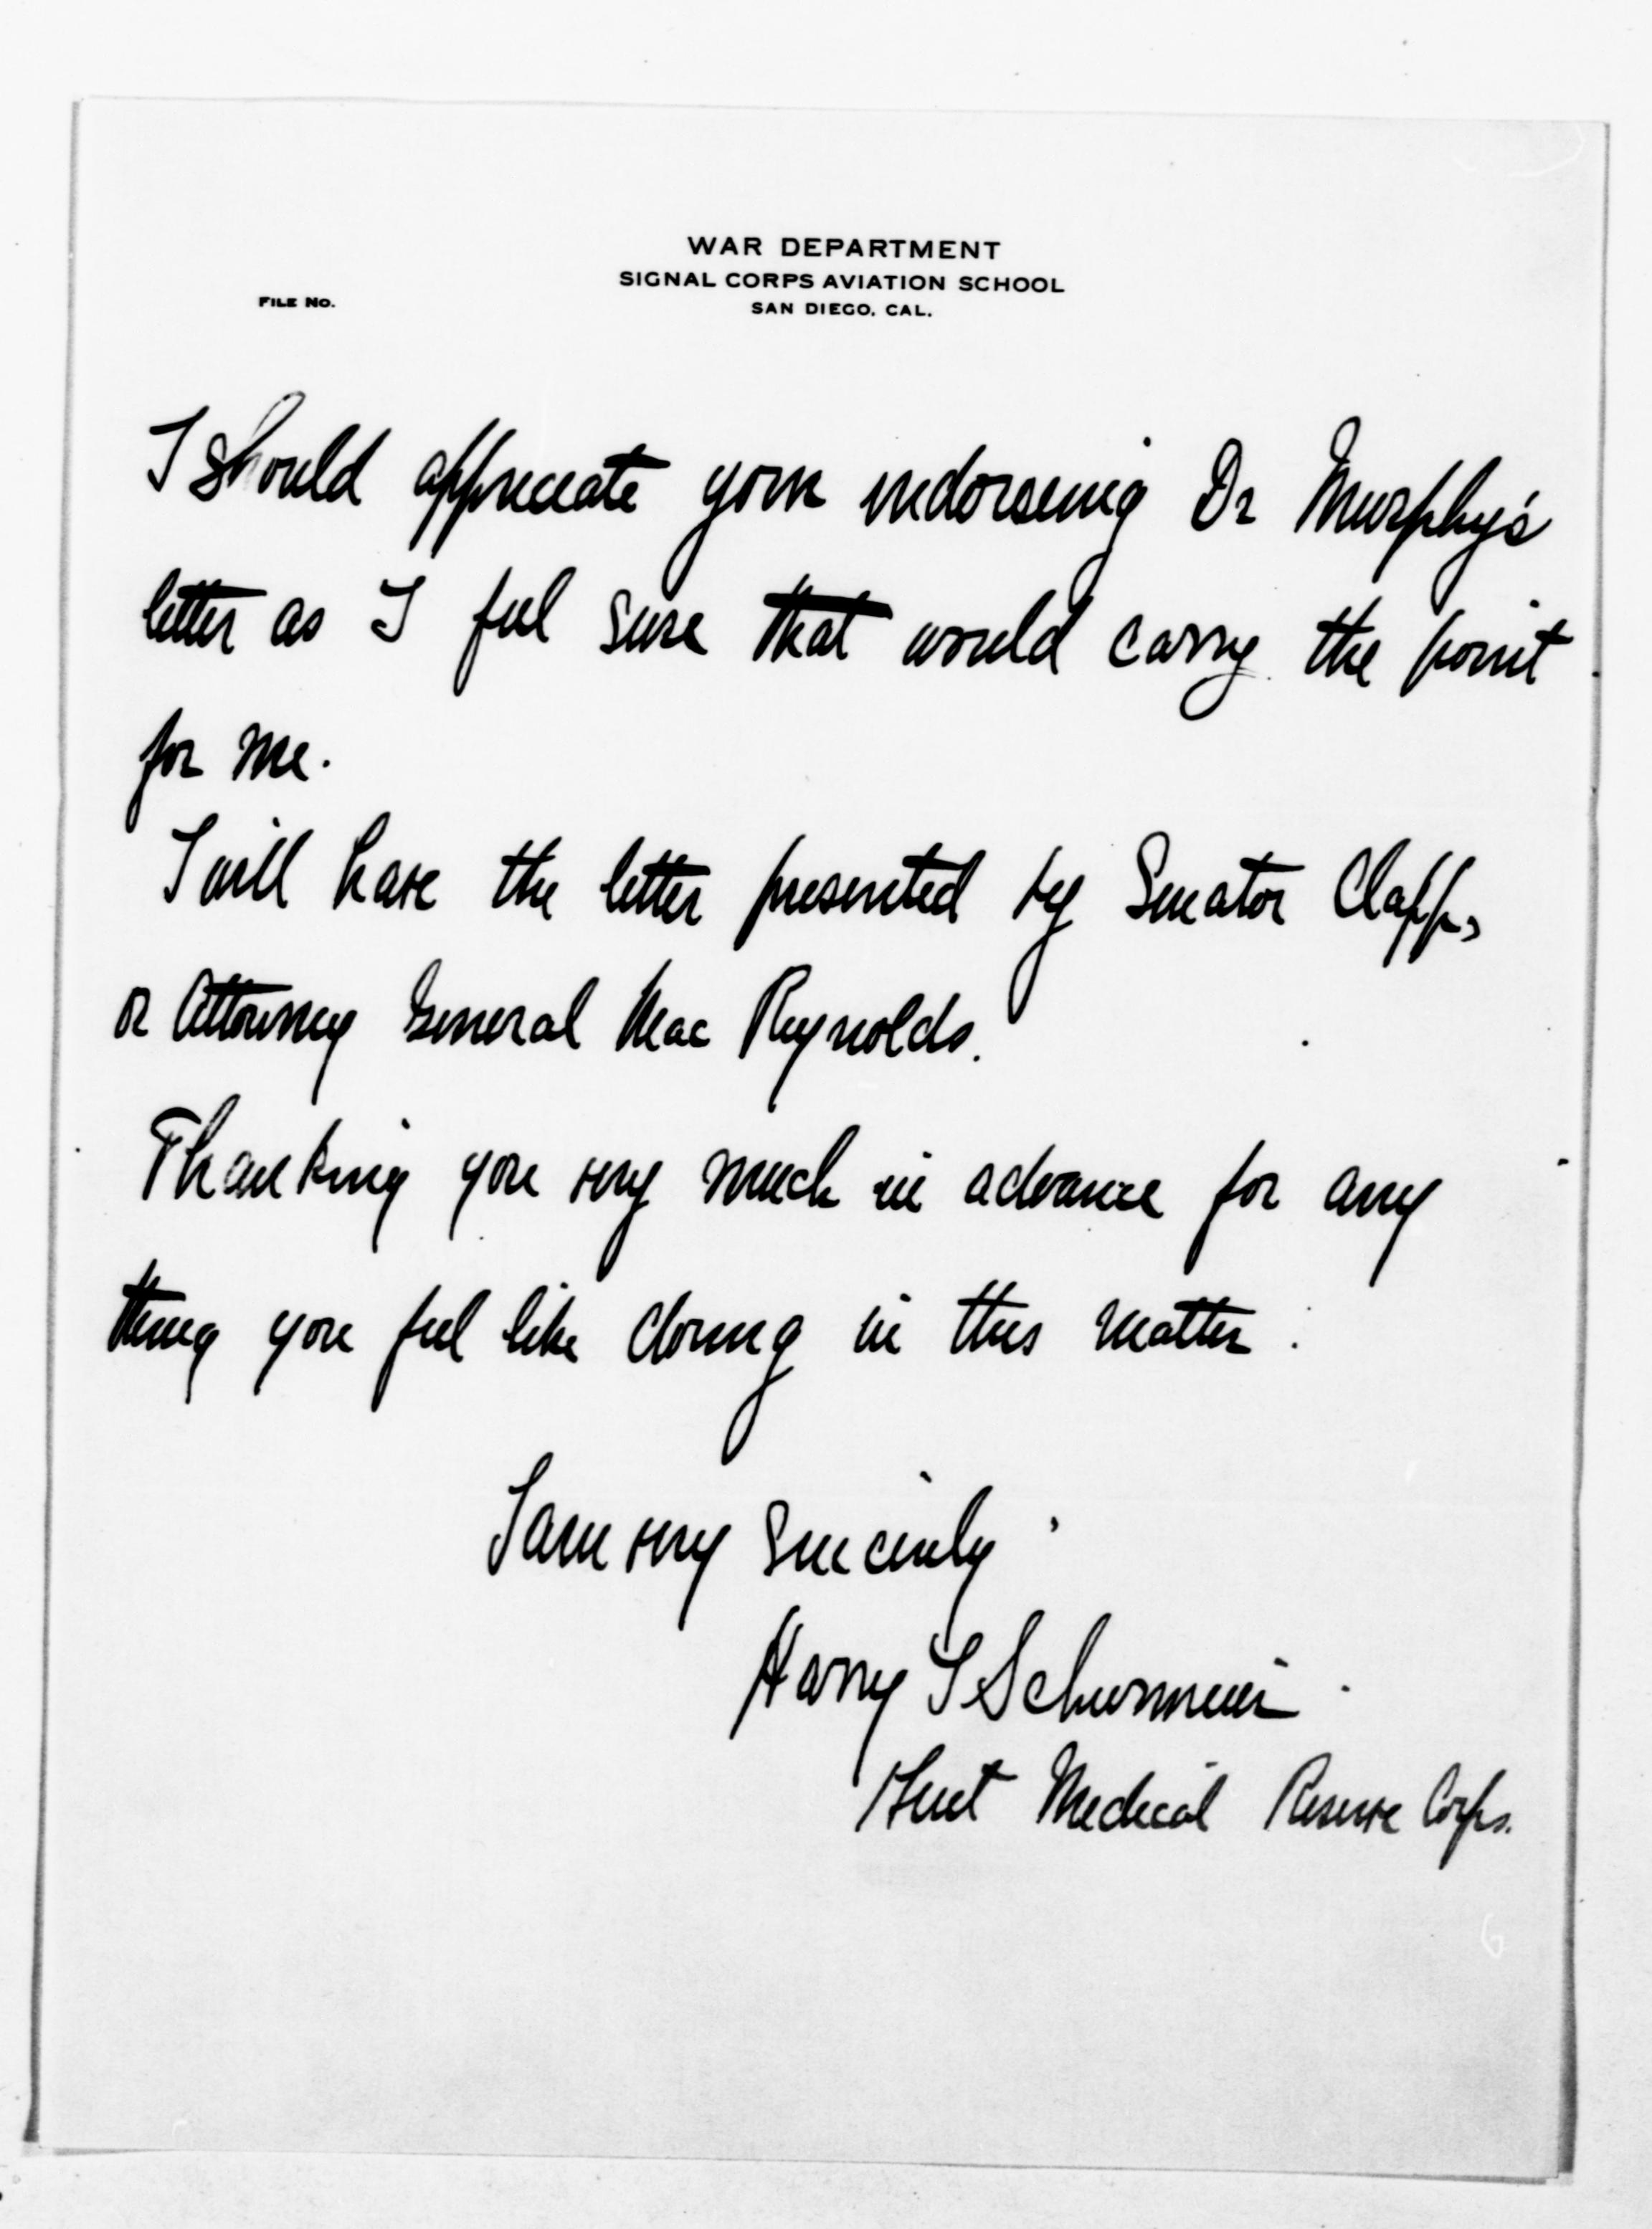 WAR DEPARTMENT
SIGNAL CORPS AVIATION SCHOOL
SAN DIEGO, CAL.
FILE No.
I should appreciate your indorseing Dr Murphy's
letter as I feel sure that would carry the point
for me.
I will have the letter presented by Senator Clapp,
or Attorney General Mac Reynolds.
Thanking you very much in advance for any
thing you feel like doing in this matter.
I am very Sincerely
Harry S Schurmeier
Lieut Medical Reserve Corps.